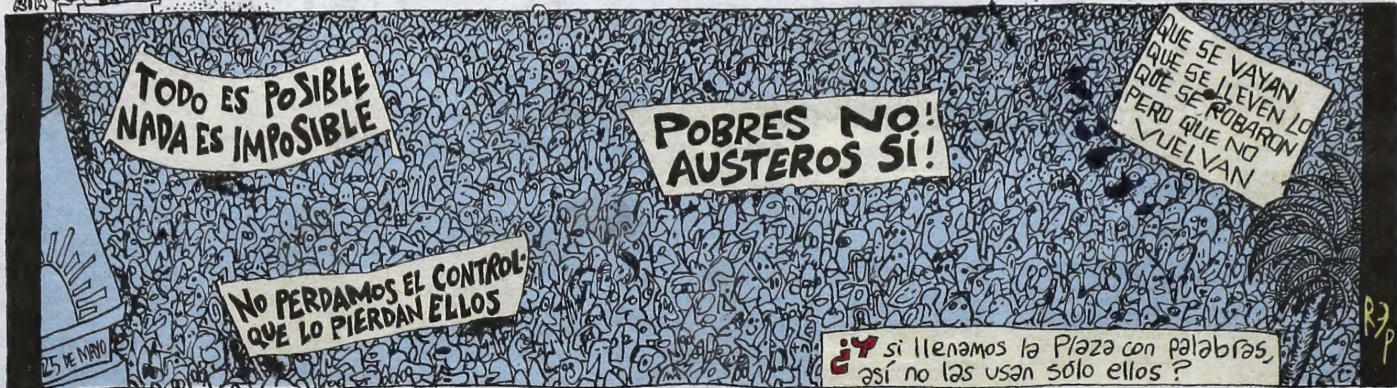 TODO ES POSIBLE
NADA ES IMPOSIBLE
POBRES NO!
AUSTEROS SÍ!
QUE SE VAYAN
QUE SE LLEVEN LO
QUE SE ROBARON
PERO QUE NO
VUELVAN
NO PERDAMOS EL CONTROL-
QUE LO PIERDAN ELLOS
25 DE MAYO
¿Y si llenamos la Plaza con palabras,
así no las usan sólo ellos?
REP